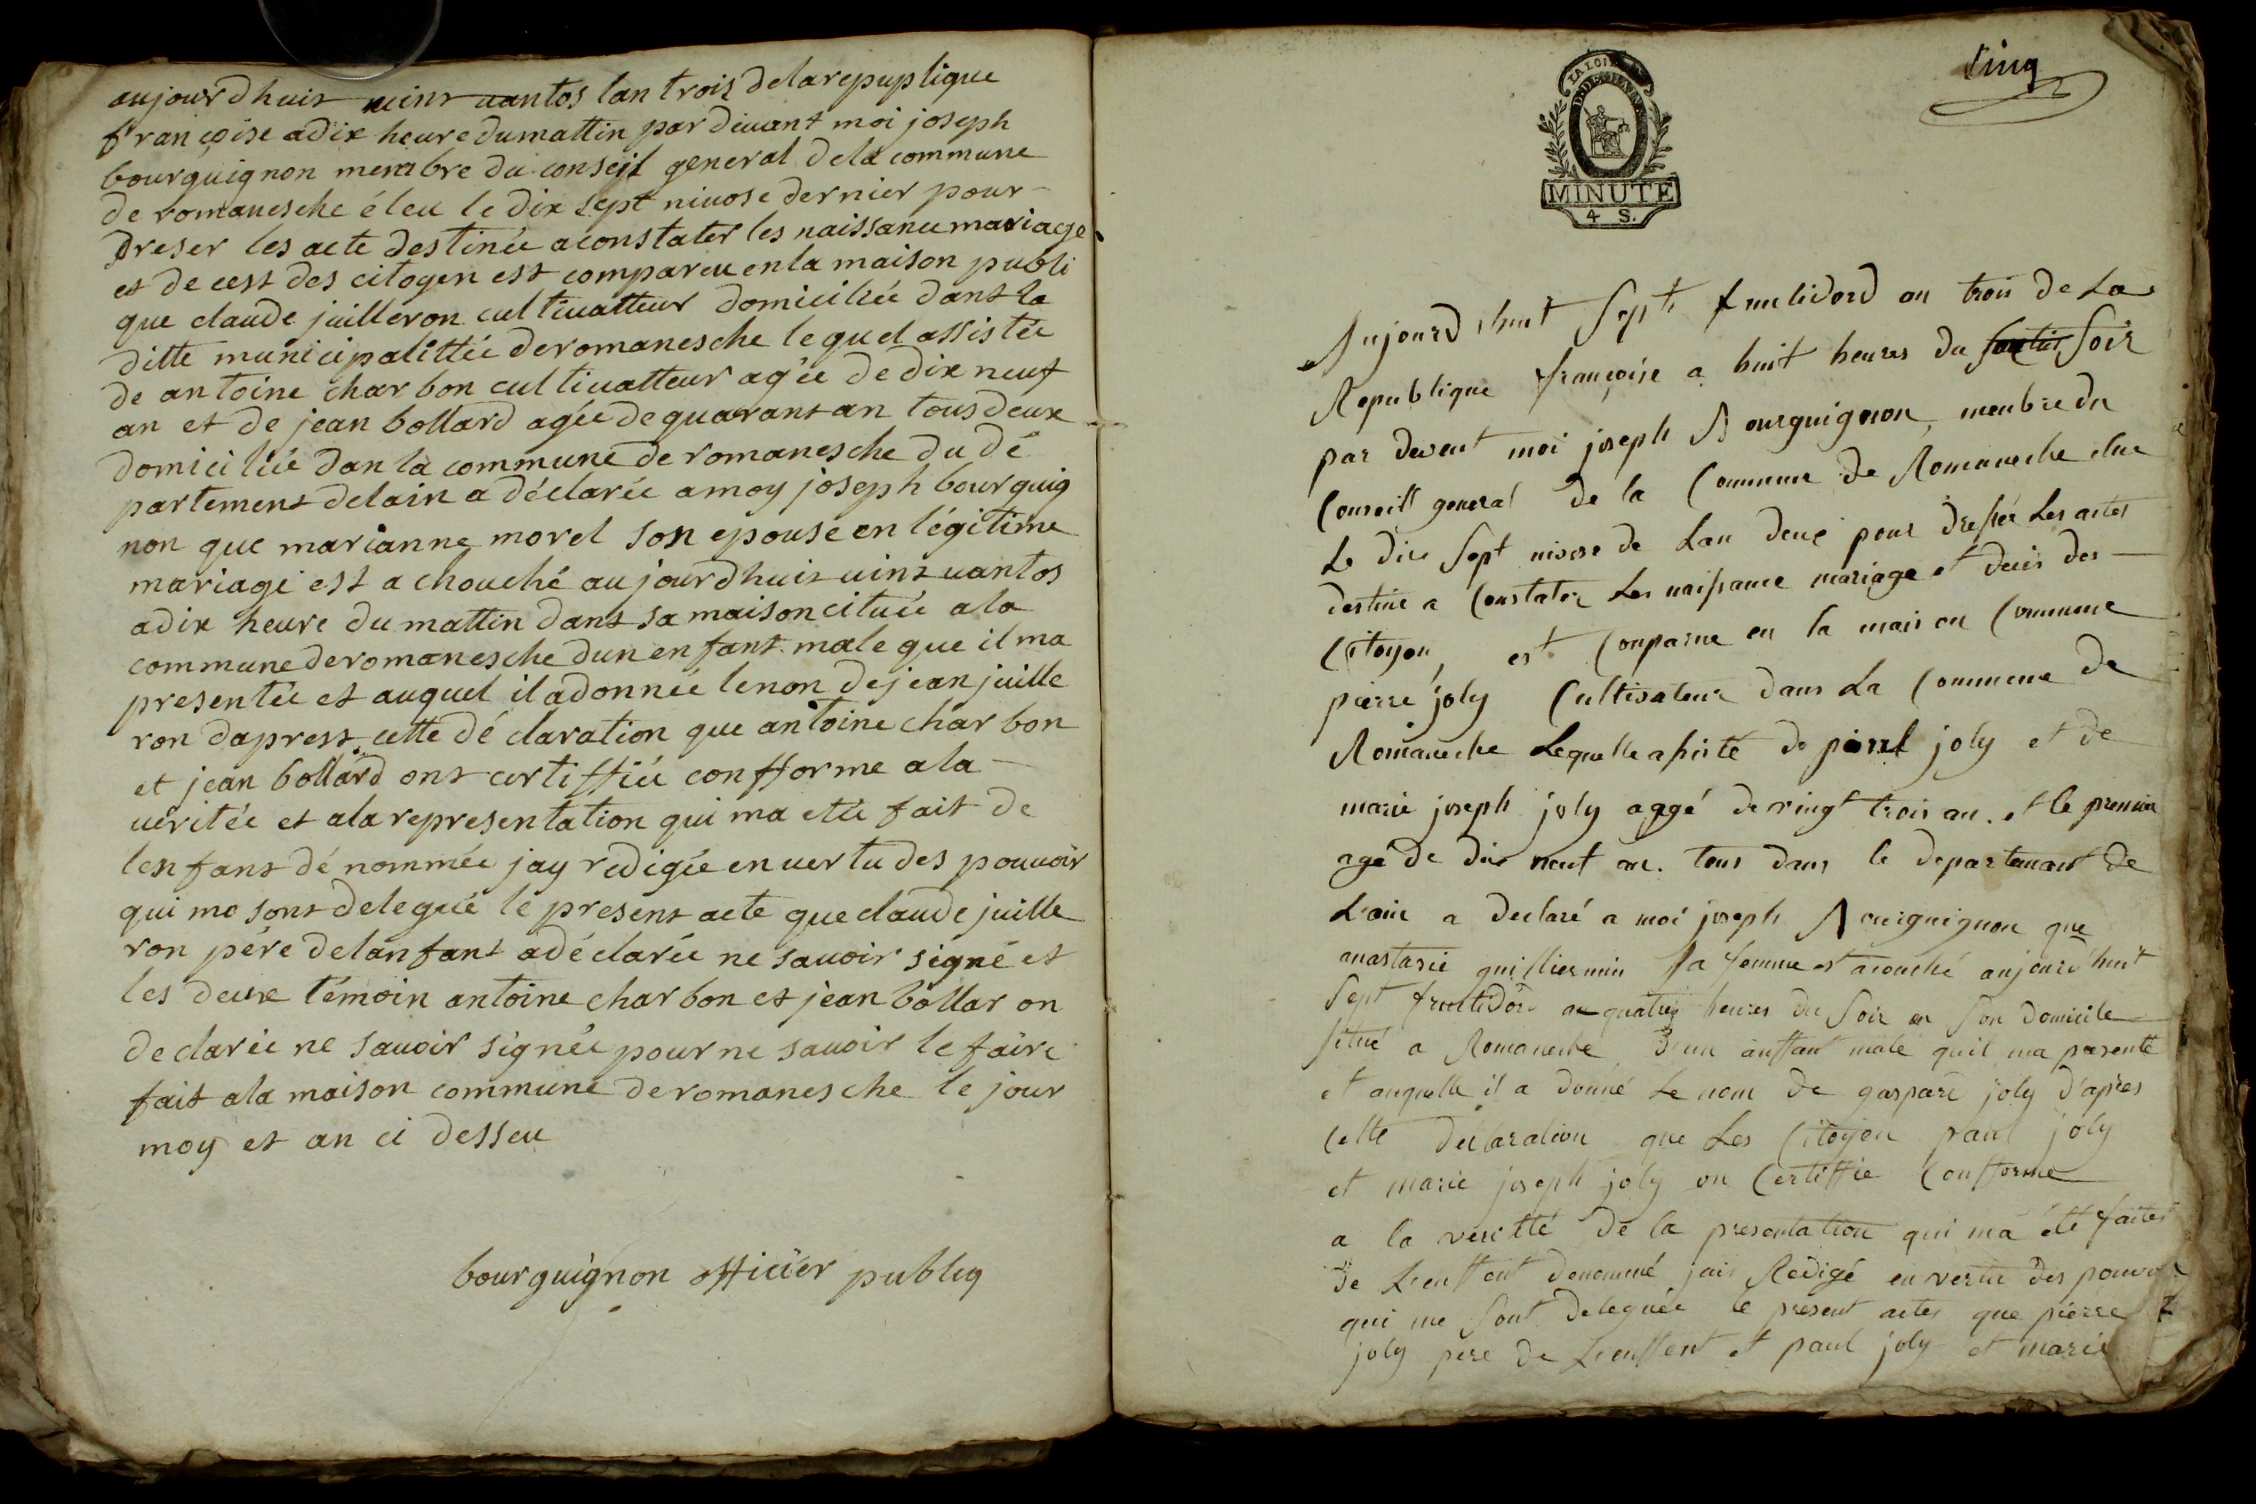 aujourdhuit uint uantos lan trois delarepuplique
françoise adix heure dumattin par diuant moi joseph
bourguignon membre du conseil general dela commune
de romanesche éleu le dix sept niuose dernier pour
dreser les acte destinée aconstater les naissance mariage
et de cest des citoyen est compareu enla maison publi
que claude juilleron cultiuatteur domiciliée dant la
ditte municipalittée deromanesche lequel assistée
de antoine charbon cultiuatteur agée de dix neuf
an et de jean bollard agée de quarant an tous deux
domiciliée dan la commune de romanesche du dé
partement delain a déclarée amoy joseph bourguig
non que marianne morel son epouse en légitime
mariage est a chouché aujourdhuit uint uantos
adix heure du mattin dant sa maison cituée ala
commune deromanesche dun enfant male que il ma
presentée et auquel il adonnée lenon de jean juille
ron daprest cette dé claration que antoine charbon
et jean bollard ont certiffiée confforme ala
ueritée et ala representation qui ma etée fait de
lenfant dé nommée jay redigée en uertu des pouvoir
qui mo sont delegué le present acte que claude juille
ron pére delanfant adéclarée ne sauoir signé et
les deux témoin antoine charbon et jean bollar on
declarée ne sauoir signée pour ne sauoir le faire
fait ala maison commune deromanesche le jour
moy et an ci desseu
bourguignon officier publiq
cinq
LA LOI
MINUTE
4 S.
Aujourdhuit Sept fructidord an trois de La
Republique françoise a huit heures du Soir
par devent moi joseph Bourguignon, membre du
Conseill general de la Commune de Romaneche elue
Le dix Sept nivose de Lan deux pour dresser Les actes
destiné a Constater Les naissance mariage et decés des
Citoyen, est Comparue en la maison Commune
pierre joly Cultivateur dans La Commune de
Romaneche Lequelle assisté de joly et de
marie joseph joly aggé de vingt trois an. et le premier
agé de dix neuf an. tous dans le departement de
L'ain a declaré a moi joseph Bourguignon que
anastasie guilliermin Sa femme est acouché aujourdhuit
Sept fructidor a quatre heures du Soir en Son domicile
situé a Romaneche D'un anffant mâle quil ma presenté
et auquelle il a donné Le nom de gaspard joly d'apres
Cette declaration que Les Citoyen paul joly
et marie joseph joly on Certiffié Confforme
a la veritté de la presentation qui ma été faites
de L'enffent denommé jais Redigé en vertu des pouvoir
qui me Sont deleguée le present actes que pierre
joly pere de L'enffent et paul joly et marie